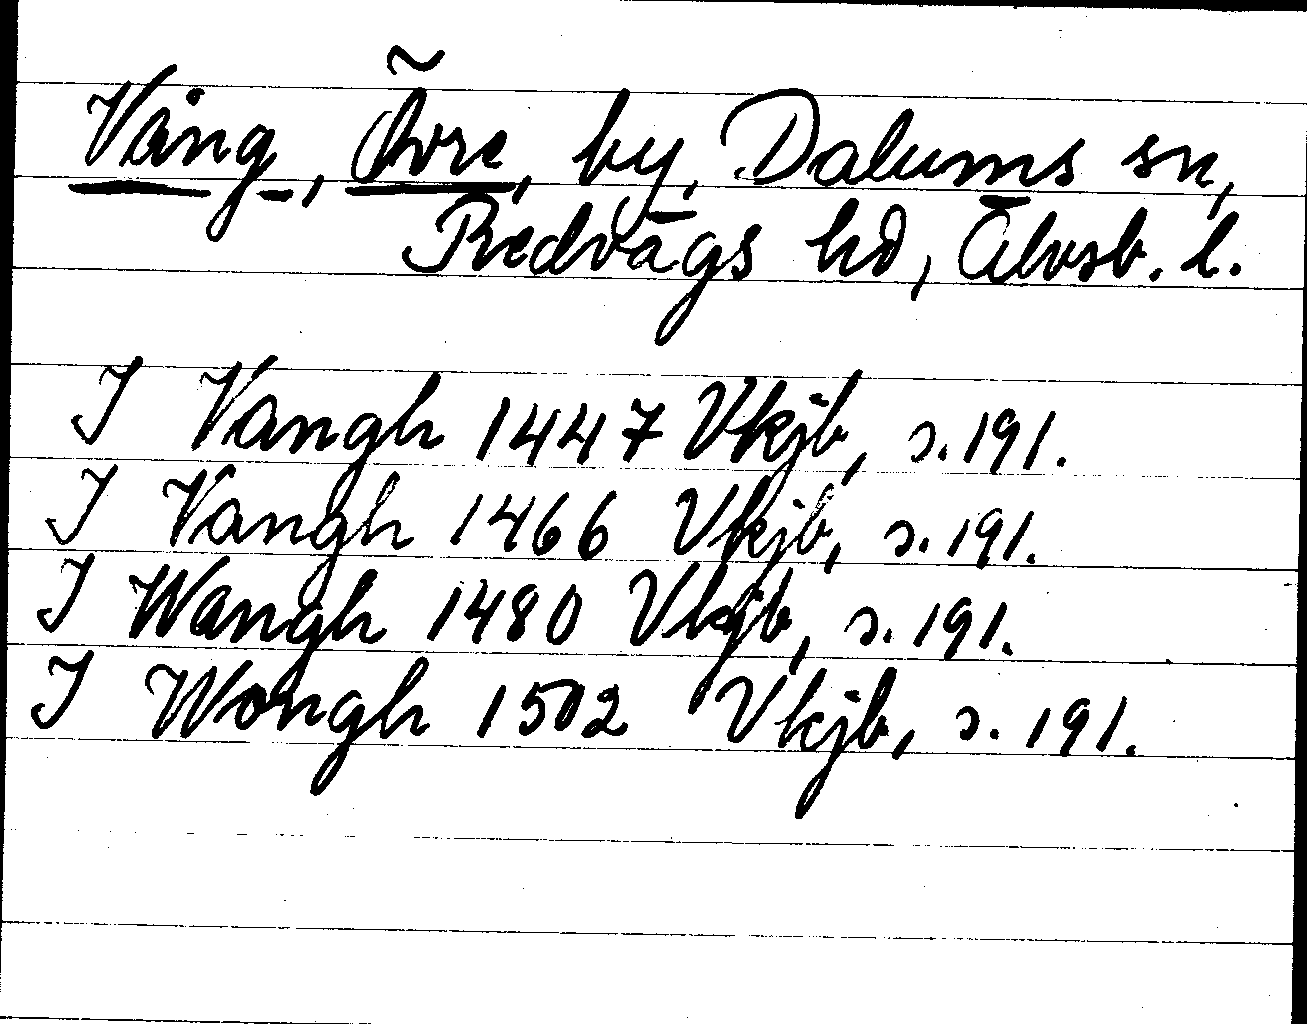 Vång, Övre, by, Dalums sn,
Redvägs hd, Älvsb. l.
I Vangh 1447 Vkjb, s. 191.
I Vangh 1466 Vkjb, s. 191.
I Wangh 1480 Vkjb, s. 191.
I Wongh 1502 Vkjb, s. 191.